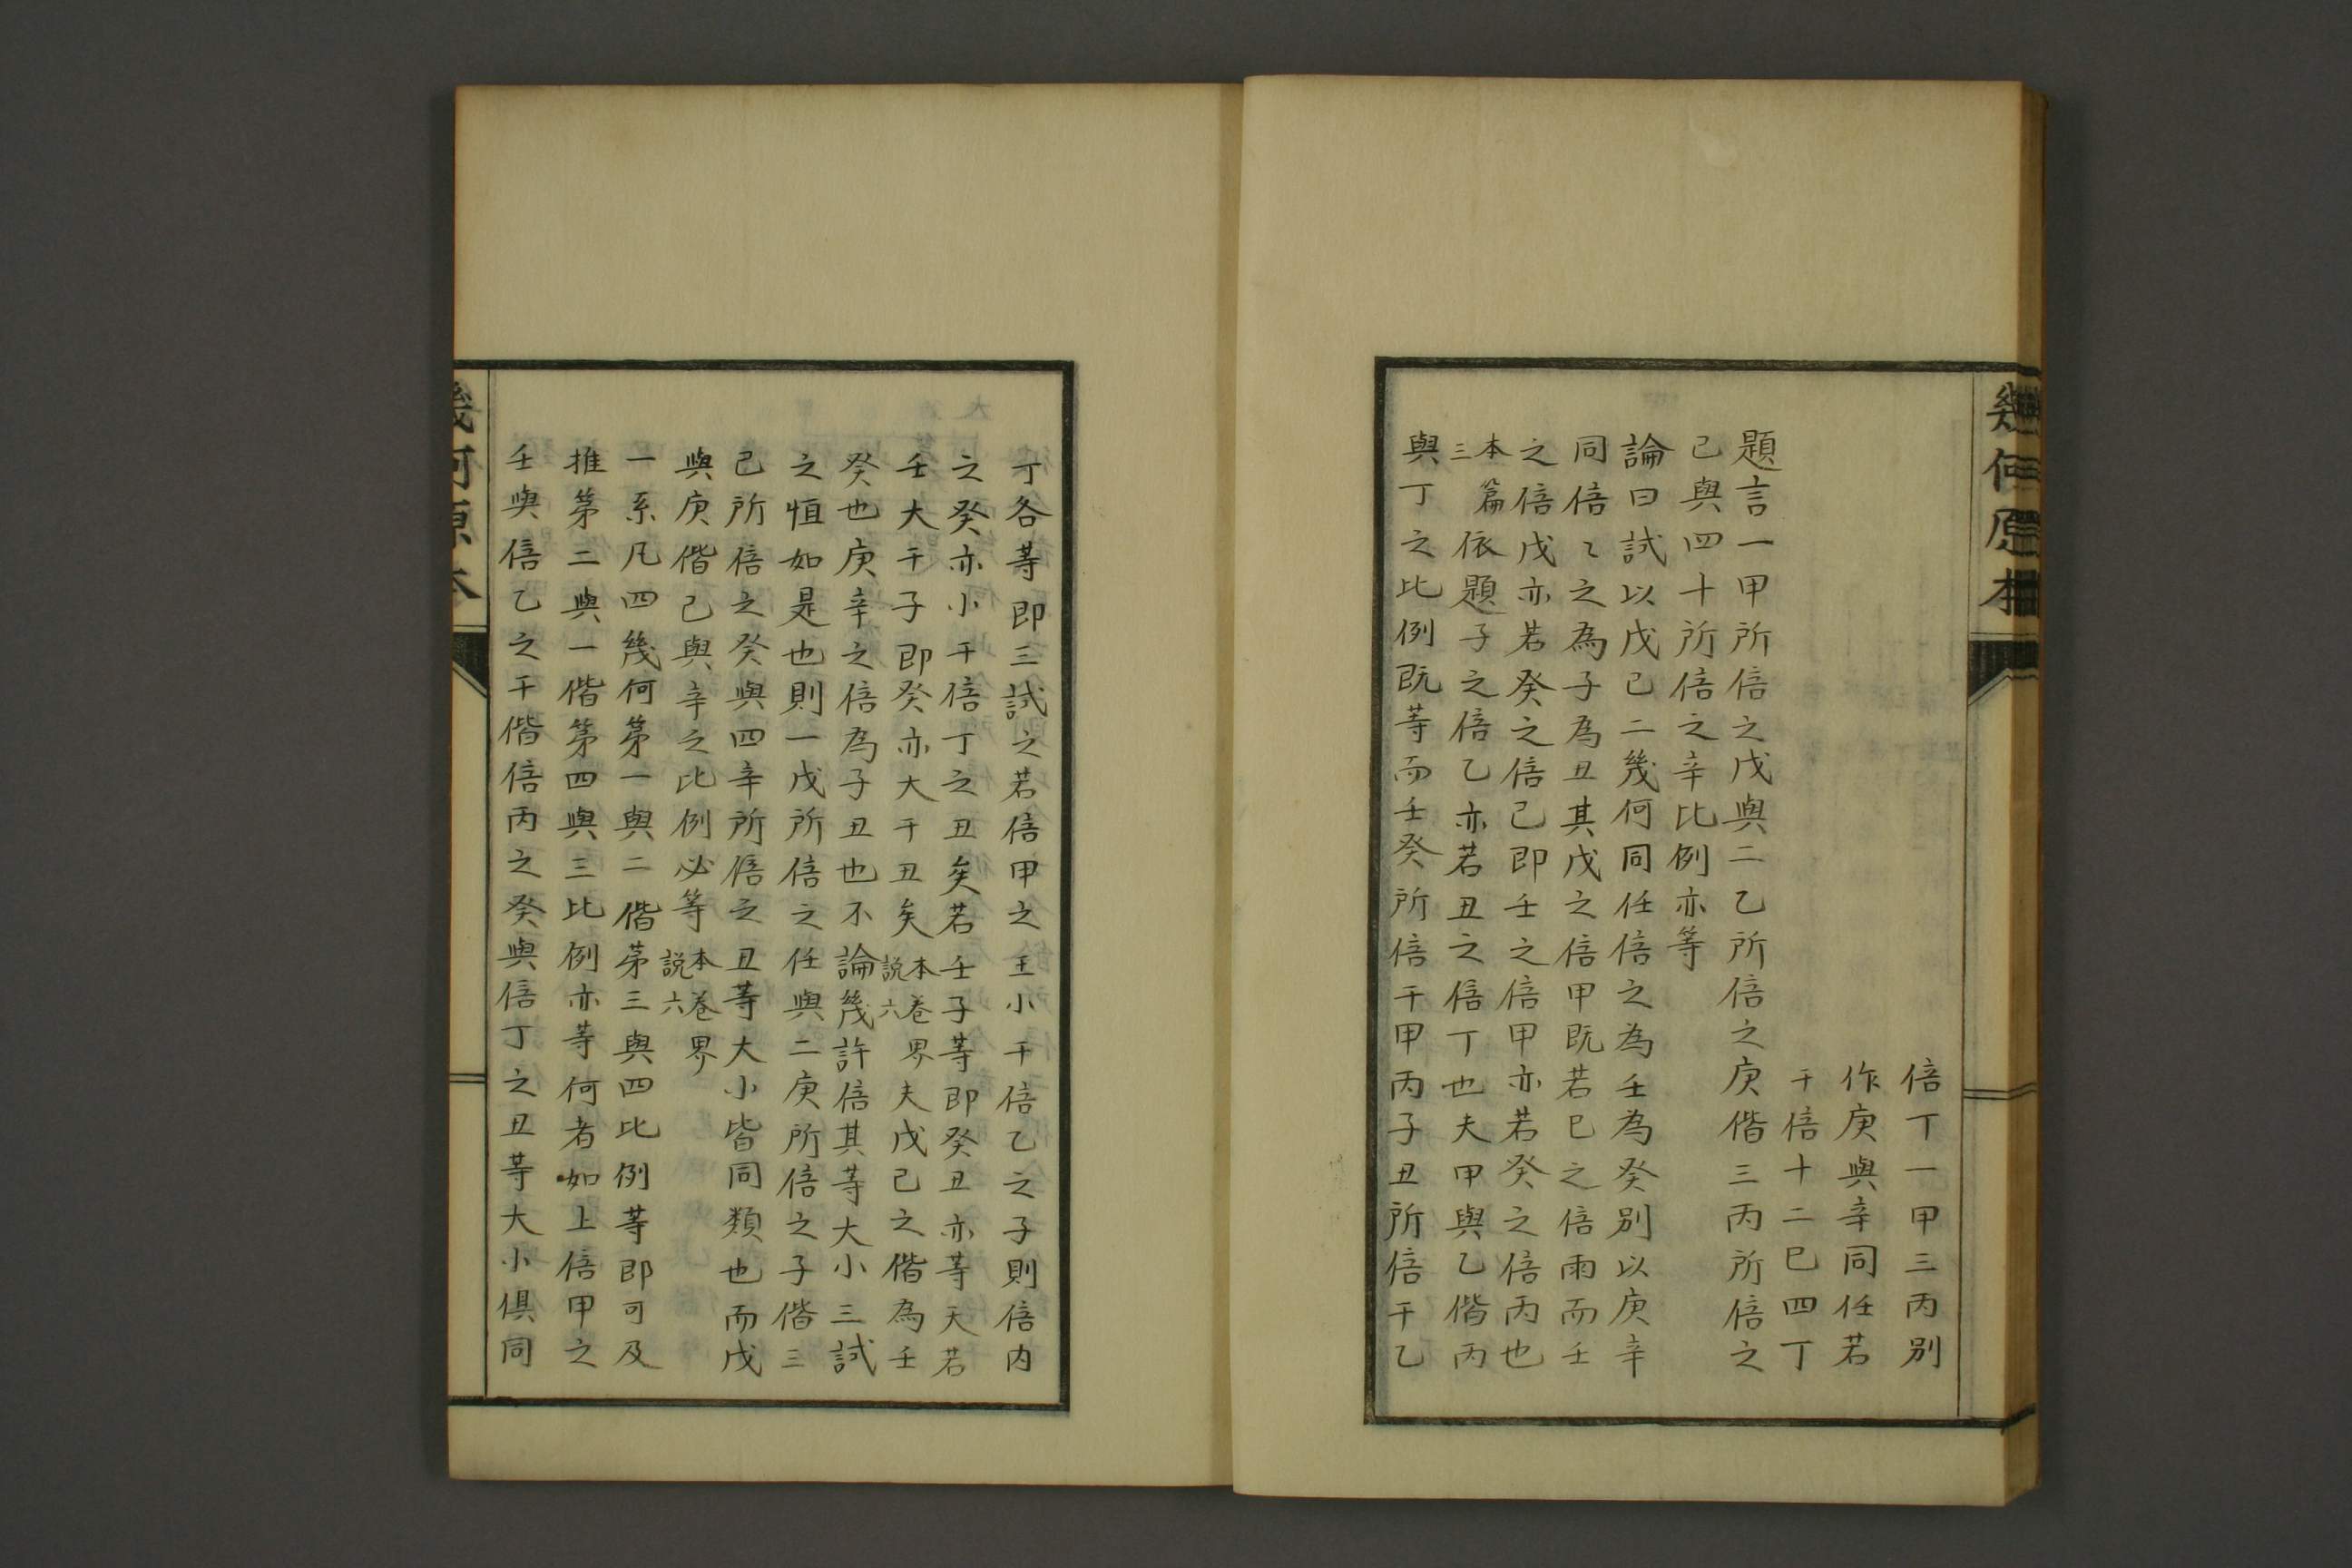 幾何原本
倍丁一甲三丙別
作庚與辛同任若
干倍十二巳四丁
題言一甲所倍之戊與二乙所倍之庚偕三丙所倍之
己與四十所倍之辛比例亦等
論曰試以戊己二幾何同任倍之為壬為癸別以庚辛
同倍〻之為子為丑其戊之倍甲既若巳之倍雨而壬
之倍戊亦若癸之倍己即壬之倍甲亦若癸之倍丙也
本篇三依題子之倍乙亦若丑之倍丁也夫甲與乙偕丙
與丁之比例既等而壬癸所倍干甲丙子丑所倍干乙
丁各等即三試之若倍甲之主小干倍乙之子則倍内
之癸亦小干倍丁之丑矣若壬子等即癸丑亦等天若
壬大干子即癸亦大干丑矣本卷界說六夫戊己之偕為壬
癸也庚辛之倍為子丑也不論幾許倍其等大小三試
之恒如是也則一戊所倍之任與二庚所倍之子偕三
己所倍之癸與四辛所倍之丑等大小皆同類也而戊
與庚偕己與辛之比例必等本卷界說六
一系凡四幾何第一與二偕第三與四比例等即可及
推第二與一偕第四與三比例亦等何者如上倍甲之
壬與倍乙之干偕倍丙之癸與倍丁之丑等大小俱同
幾何原本